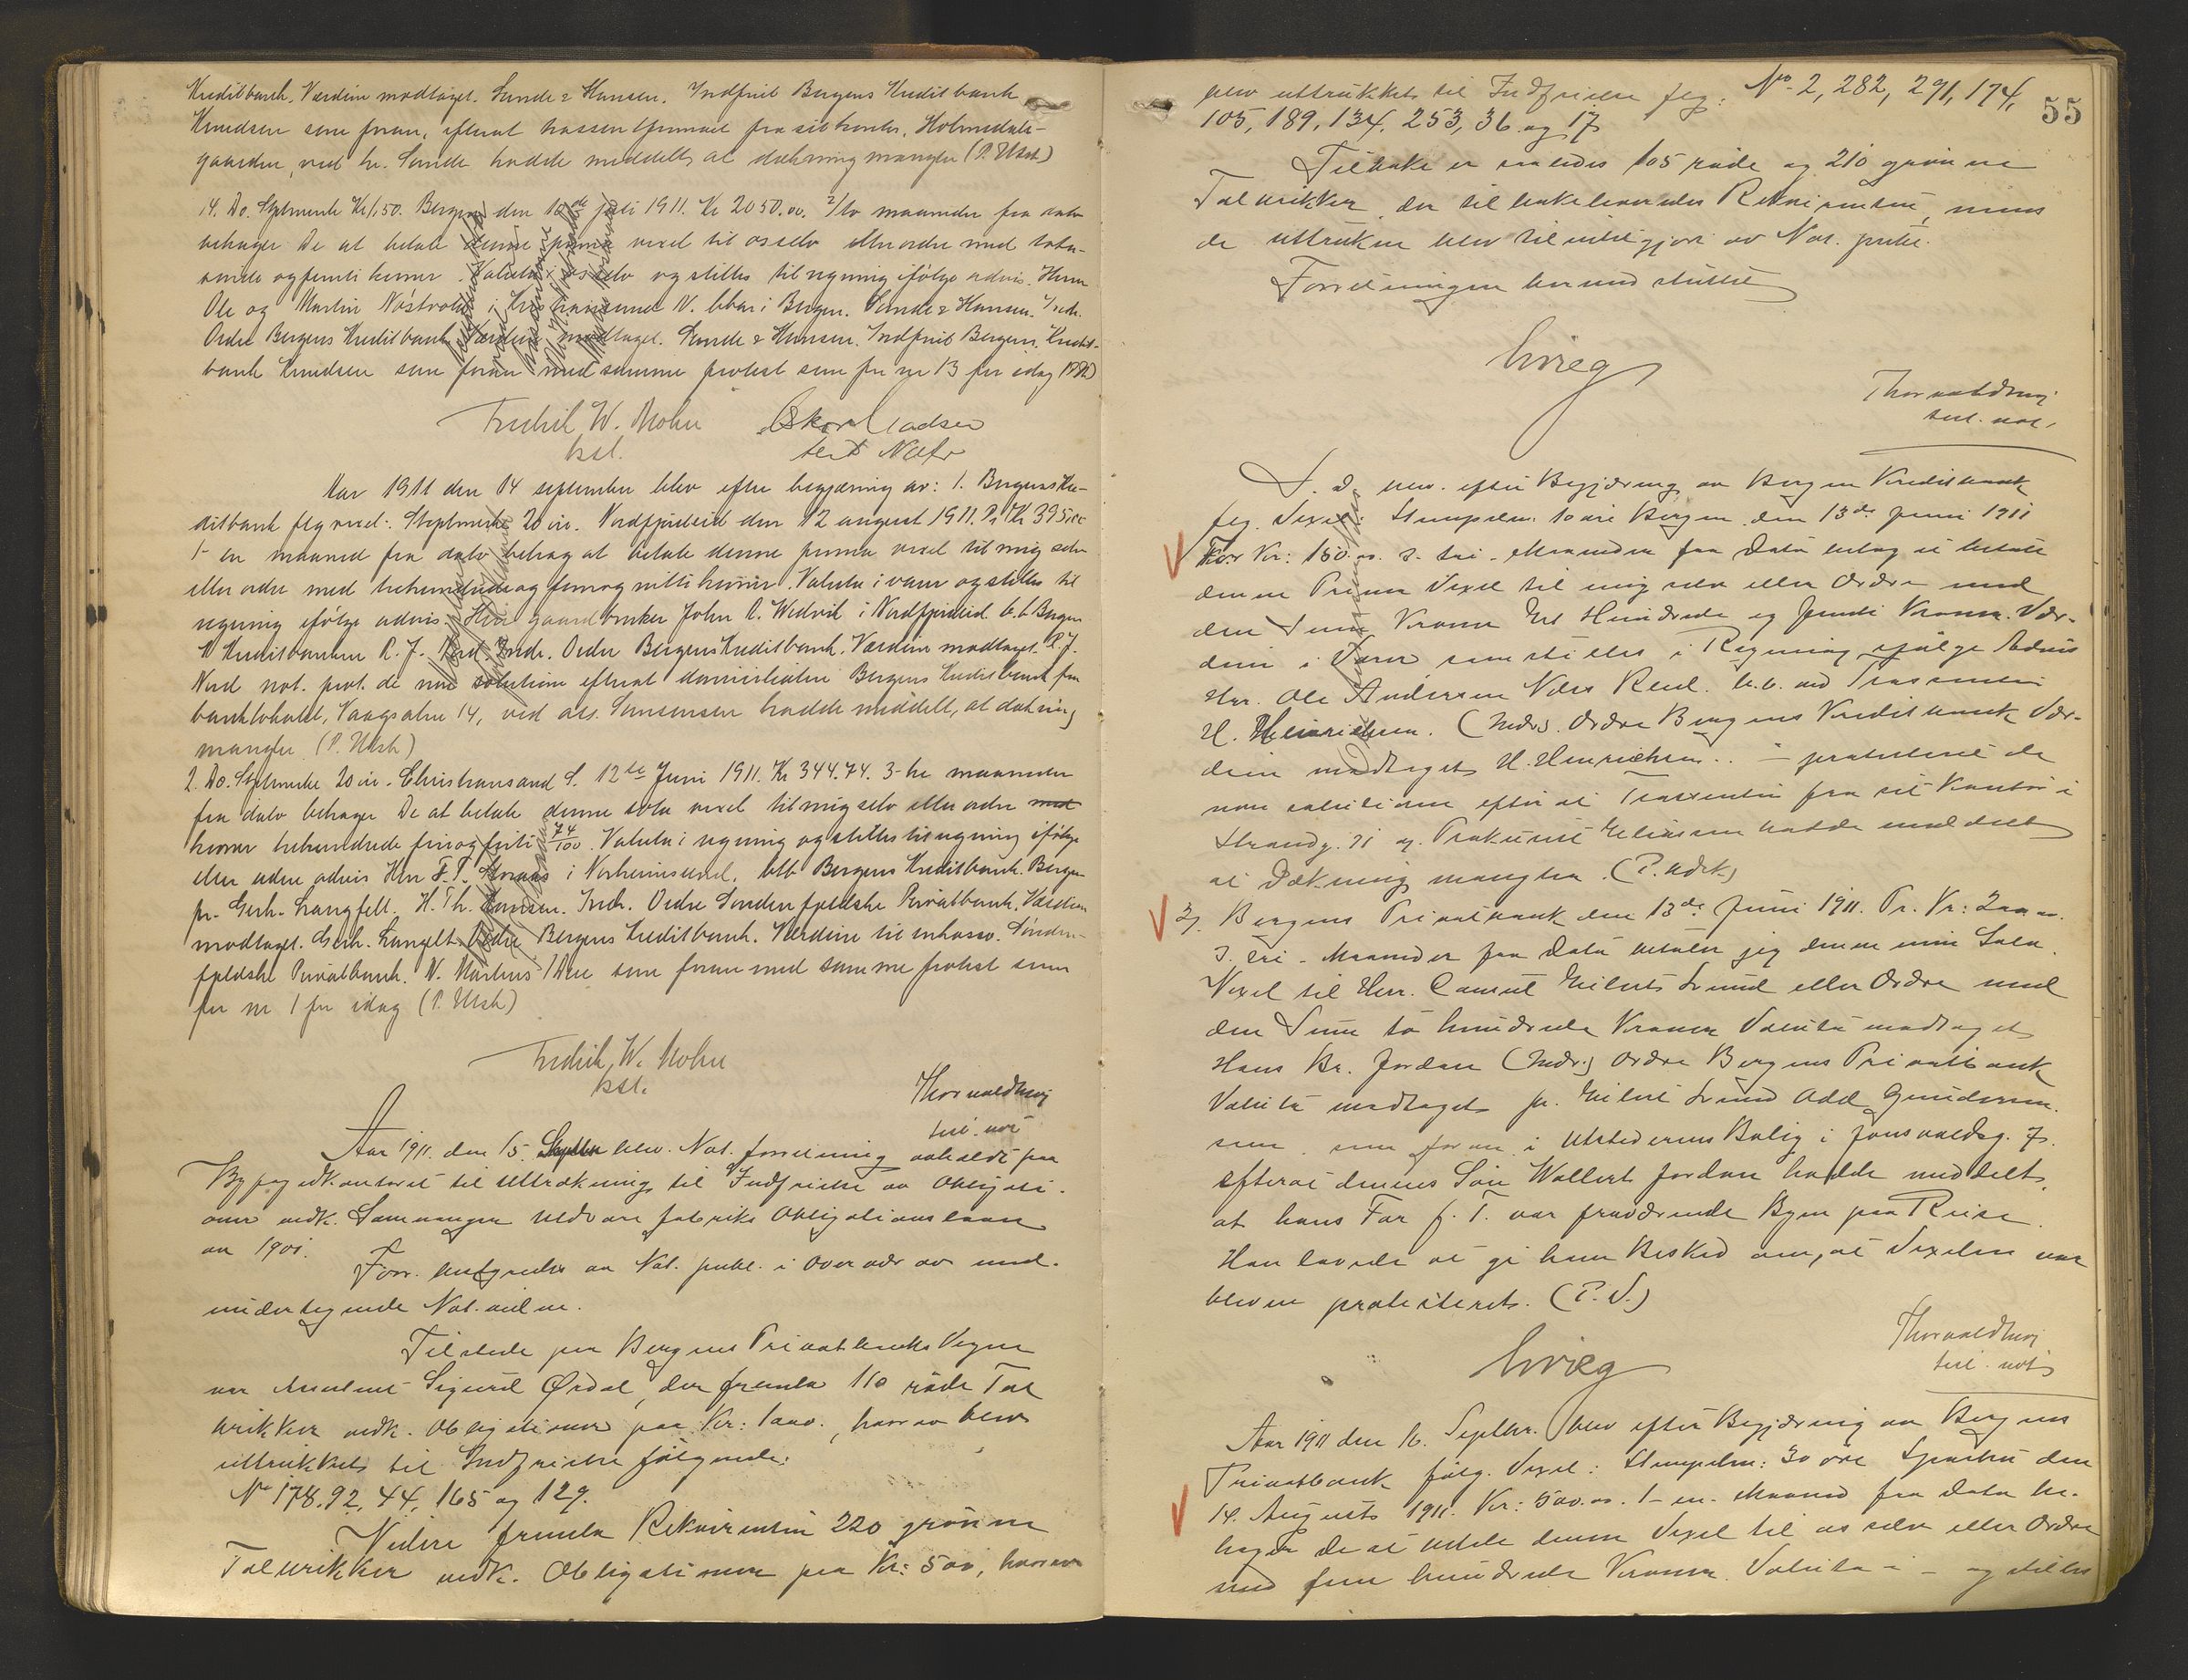 Kreditbank. Værdien modtaget. Sunde & Hansen. Indfriet Bergens Kreditbank
Knudsen som foran, efterat trassent fra sit kontor, Holmedals-
gaarden, ved hr. Sunde hadde meddelt, at dækning mangler (P. Utsk)
14. Do. Stplmerke Kr 1,50. Bergen den 10de juli 1911. Kr 2050.00. 2/to maaneder fra dato
behager De at betale denne prima vexel til os selv eller ordre med totu-
sende og femti kroner. Valuta i os selv og stilles til regning ifølge advis. Herrer
Ole og Martin Nøstvold i Kristianssund N. bbar i Bergen. Sunde & Hansen. Indr.
Ordre Bergens Kreditbank Værdien modtaget. Sunde & Hansen. Indfriet Bergens Kredit-
bank Knudsen som foran med samme protest som for nr 13 for idag (P. Utsk)
Fredrik W. Mohn Oskar Madsen
kst. test Notr
Aar 1911 den 14 september blev efter begjæring av: 1. Bergens Kre-
ditbank flg vexel: Steplmerke 20 øre. Nordfjordeid den 12 august 1911. Pr Kr 395,00
1- en maaned fra dato behag at betale denne prima vexel til mig selv
eller ordre med trehundrede og femognitti kroner. Valuta i varer og stilles til
regning ifølge advis. Herr gaardbruker John A. Wedvik i Nordfjordeid b. b. Bergens
Kreditbanken R. J. Nord. Indr. Ordre Bergens Kreditbank. Værdien modtaget. R. J.
Nord not. prot. de non solutione efterat domiciliaten Bergens Kreditbank fra
banklokalet, Vaagsalm. 14, ved ass. Simonsen hadde meddelt, at dækning
mangler (P. Utsk)
2. Do. Stplmerke 20 øre. Christiansand S. 12te Juni 1911. Kr 344.74. 3-tre maaneder
fra dato behager De at betale denne sola vexel til mig selv eller ordre med
kroner trehundrede firiogfirti 74/100. Valuta i regning og stilles til regning ifølge
eller uden advis Herr F. T. i Norheimsund, bbb Bergens Kreditbank. Bergen
pr. Gerh. Langfelt. H. Th. Hansen. Indr. Ordre Søndenfjeldske Privatbank. Værdien
modtaget. Gerh. Langfelt Ordre Bergens Kreditbank. Værdien til inkasso. Sønden-
fjeldske Privatbank. N. som foran med samme protest som
for nr 1 for idag (P. Utsk)
Fredrik W. Mohn
kst.
Thorvald
test. not
Aar 1911. den 15. Septbr blev Not. forretning avholdt paa
Byfogedkontoret til Uttrækning til Indfrielse av Obligati-
oner vedk. Samnanger Uldvare fabriks Obligationslaan
av 1901.
Forr. betjentes av Not. publ. i Overvær av med-
undertegnede Not. vidne.
Tilstede paa Bergens Privatbanks Vegne
var Assistent Sigurd Ørdal, der fremla 110 røde Tal
brikker vedk. Obligationer paa Kr: 1000., hvorav blev
uttrukket til Indfrielse følgende:
No 178, 92, 44, 165 og 129.
Videre fremla Rekvirenten 220 grønne
Talbrikker vedk. Obligationer paa Kr: 500, hvorav
55
blev uttrukket til Indfrielse flg: No 2, 282, 291, 174,
105, 189, 134, 253, 36 og 17
Tilbake er saaledes 105 røde og 210 grønne
Talbrikker, der tilbakeleveredes Rekvirenten, mens
de uttrukne blev tilintetgjort av Not. publ.
Forretningen hermed sluttet
Grieg
Thorvald
test. not.
S. D. blev efter Begjæring av Bergens Kreditbank
flg. Vexel: Stempelm. 10 øre Bergen den 13de Juni 1911
For Kr: 150.00. 3. tri - Maaneder fra Dato behag at betale
denne Prima Vexel til mig selv eller Ordre med
den Sum Kroner Et Hundrede og femti Kroner. Vær-
dien i Varer som stilles i Regning ifølge Advis
Hr. Ole Andersen Næss Rend. b. b. ved Trassenten
H. Heinrichsen. (Indr). Ordre Bergens Kreditbank Vær-
dien modtaget H. Henrichsen. - protesteret de
non solutione efterat Trassenten fra sit Kontor i
Strandg. 71 v. Prokurist Eliassen hadde meddelt
at Dækning mangler. (P. Udsk)
2). Bergens Privatbank den 13de Juni 1911. Pr. Kr: 200.00.
3. tri - Maaneder fra Dato betaler jeg denne min Sola
Vexel til Herr. Consul Eilert Lund eller Ordre med
den Sum to hundrede Kroner Valuta modtaget
Hans Br. Jordan (Indr.) Ordre Bergens Privatbank
Valuta modtaget pr. Eilert Lund Odd Gundersen.
som som foran i Utstederens Bolig i Jonsvoldsg. 7.
efterat dennes Søn Wollert Jordan hadde meddelt,
at hans Far f. T. var fraværende Byen paa Reise.
Han lovede at gi ham Besked om, at Vexelen var
bleven protesteret. (P. S.)
Grieg
Thorvald
test. not
Aar 1911 den 16. Septbr. blev efter Begjæring av Bergens
Privatbank følg. Vexel: Stempelm: 30 øre den
14. August 1911. Kr: 500.00. 1 - en - Maaned fra Dato be-
hager De at betale denne Vexel til os selv eller Ordre
med fem hundrede Kroner. Valuta i - og stilles